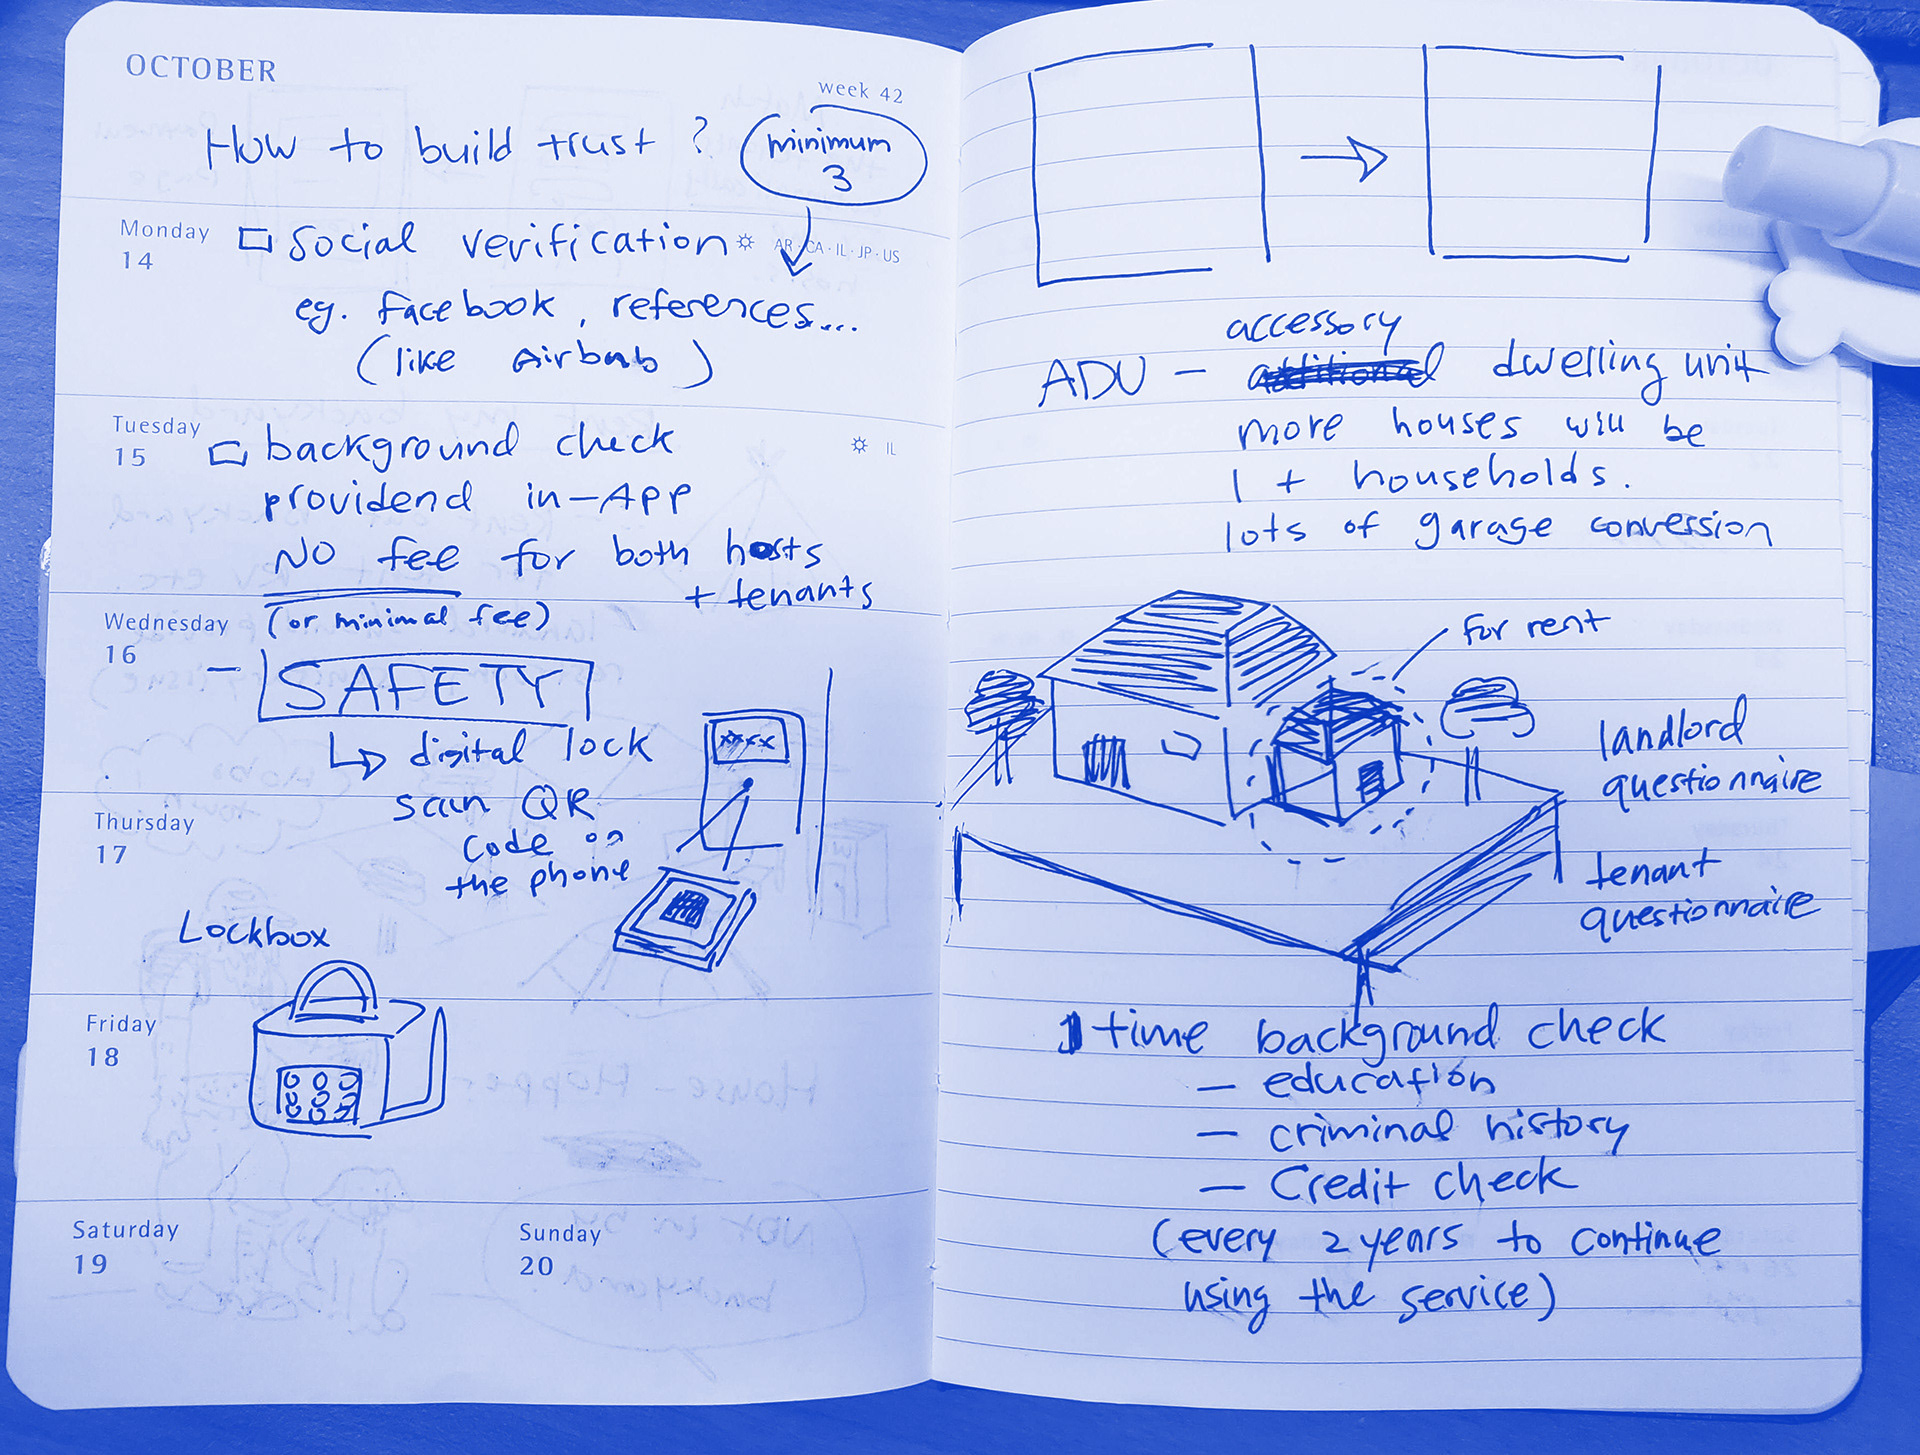 OCTOBER
week 42
How to build trust ?
minimum
3
Monday
14
social verification
AR · CA · IL · JP · US
eg. facebook, references...
(like Airbnb)
Tuesday
15
background check
IL
providend in-App
NO fee for both hosts
+ tenants
(or minimal fee)
Wednesday
16
– SAFETY
digital lock
scan QR
code on
the phone
xxxx
Thursday
17
Lockbox
Friday
18
Saturday
19
Sunday
20
accessory
ADU – additional dwelling unit
more houses will be
1 + households.
lots of garage conversion
for rent
landlord
questionnaire
tenant
questionnaire
1 time background check
– education
– criminal history
– Credit check
(every 2 years to continue
using the service)